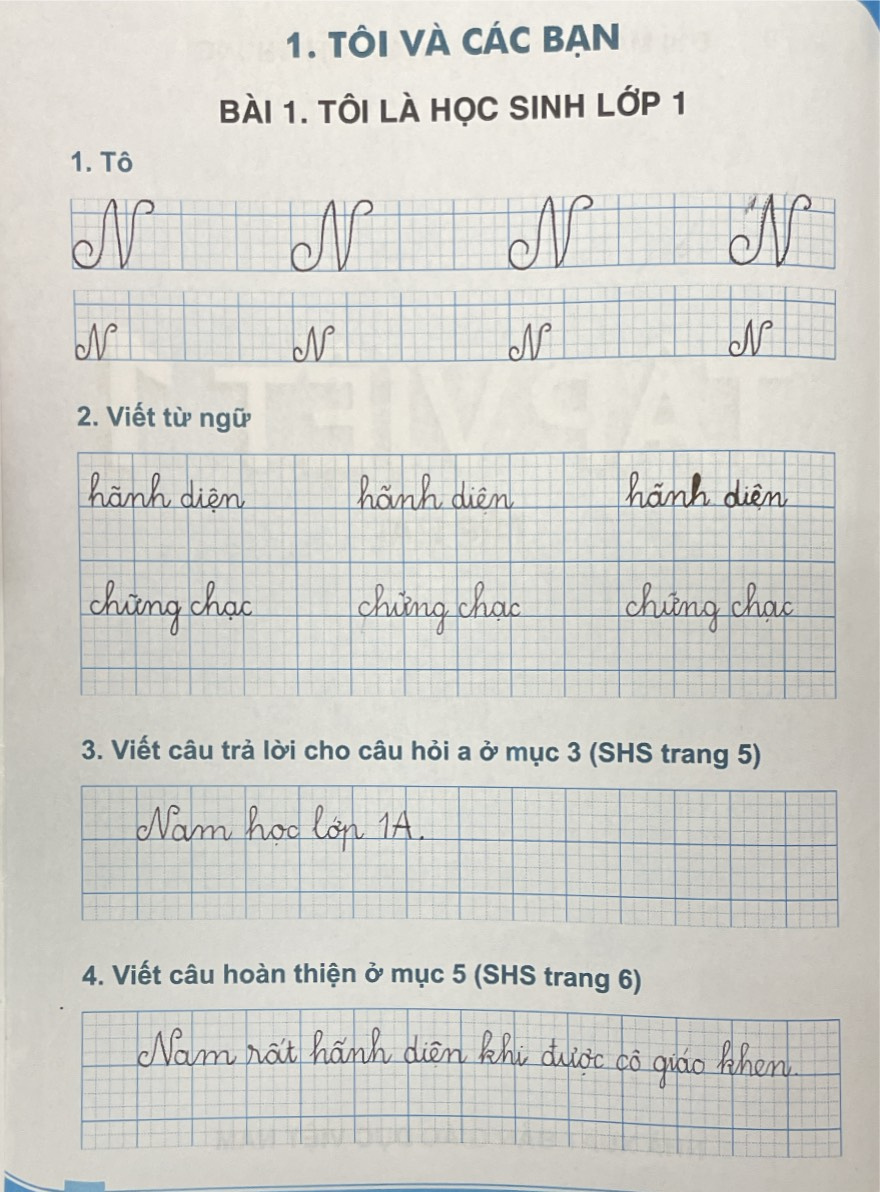 1. TÔI VÀ CÁC BẠN
BÀI 1. TÔI LÀ HỌC SINH LỚP 1
1. Tô
N N N N
N N N N
2. Viết từ ngữ
hãnh diện hãnh diện hãnh diện
chững chạc chững chạc chững chạc
3. Viết câu trả lời cho câu hỏi a ở mục 3 (SHS trang 5)
Nam học lớp 1A.
4. Viết câu hoàn thiện ở mục 5 (SHS trang 6)
Nam rất hãnh diện khi được cô giáo khen.